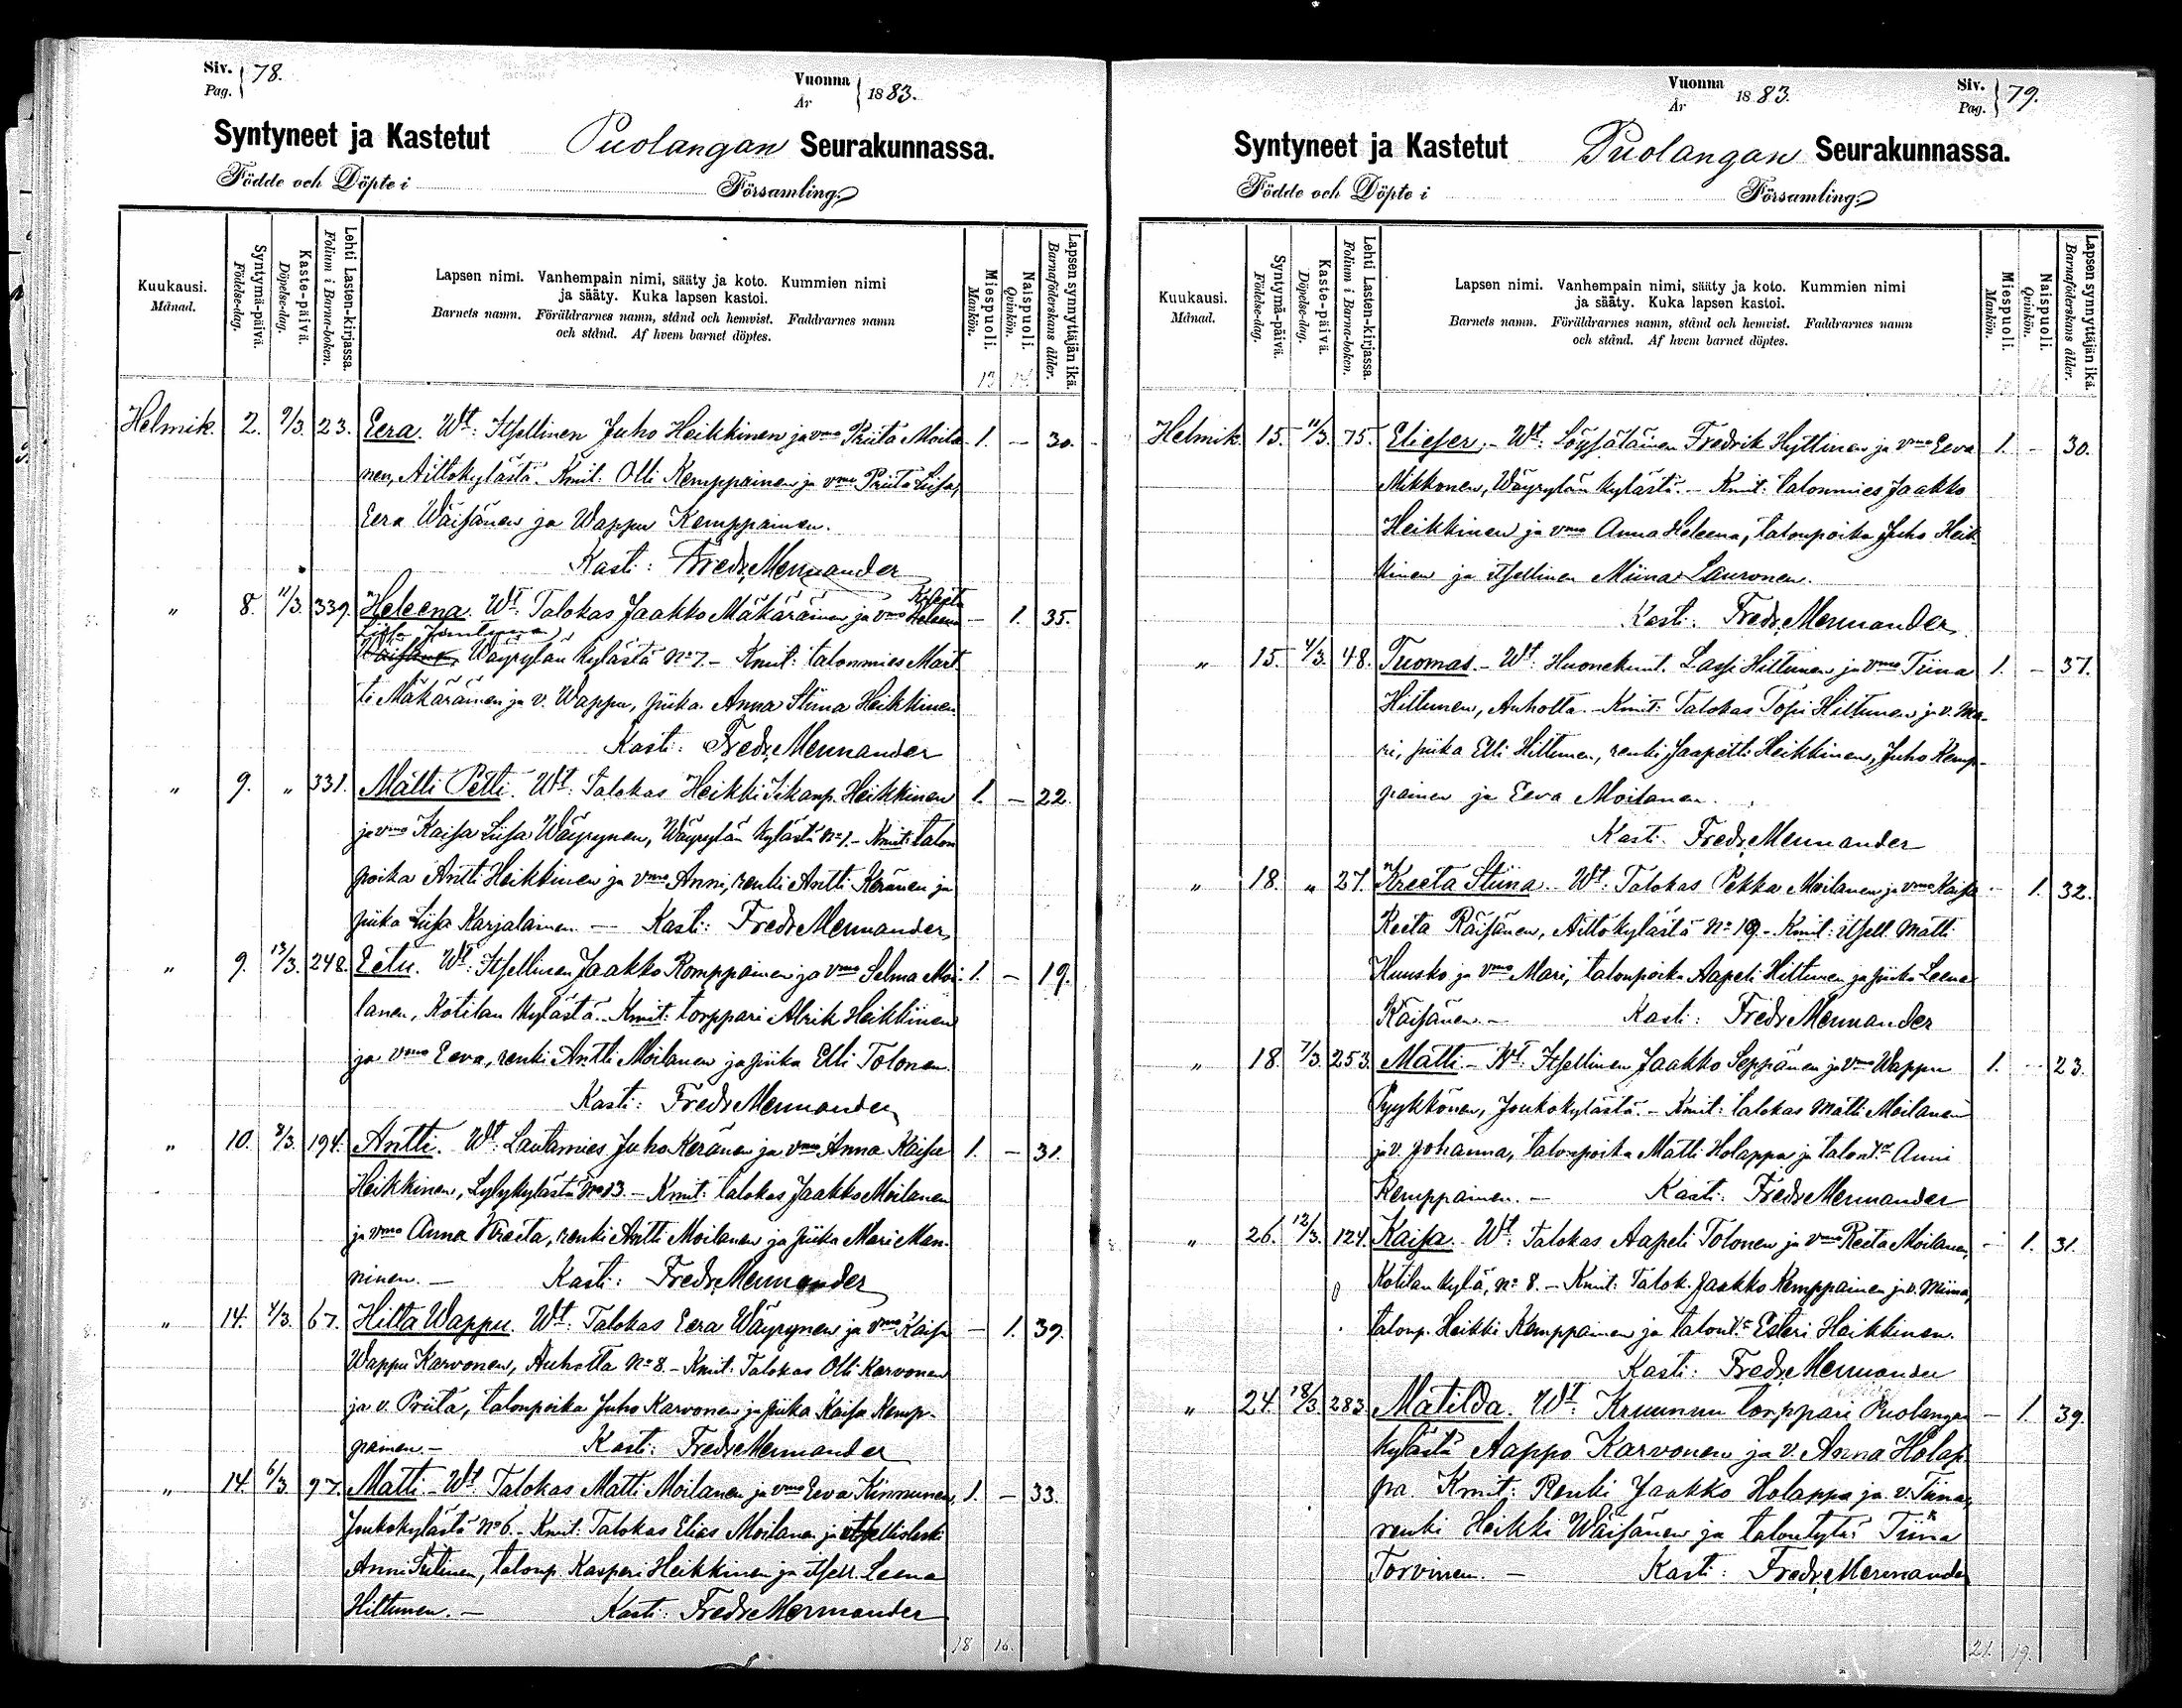 Siv. Pag. 78.
Vuonna År 1883.
Syntyneet ja Kastetut Puolangan Seurakunnassa.
Födde och Döpte i Församling.
Kuukausi. Månad.
Syntymä-päivä. Födelse-dag.
Kaste-päivä. Döpelse-dag.
Lehti Lasten-kirjassa. Folium i Barna-boken.
Lapsen nimi. Vanhempain nimi, sääty ja koto. Kummien nimi
ja sääty. Kuka lapsen kastoi.
Barnets namn. Föräldrarnes namn, stånd och hemvist. Faddrarnes namn
och stånd. Af hvem barnet döptes.
Miespuoli. Mankön.
Naispuoli. Qvinkön.
Lapsen synnyttäjän ikä. Barnaföderskans ålder.
13 14
Helmik. 2. 9/3. 23. Eera. Wt: Itsellinen Juho Heikkinen ja vmo Priita Moila- 1. — 30.
nen, Aittokylästä. Kmit: Olli Kemppainen ja vmo Priita Liisa,
Eera Wäisänen ja Wappu Kemppainen.
Kasti: Fredr. Mennander
" 8. 11/3. 339. Heleena. Wt: Talokas Jaakko Mäkäräinen ja vmo Heleena — 1. 35.
Wäisänen, Wäyrylän kylästä No 7. — Kmit: talonmies Mart-
ti Mäkäräinen ja v. Wappu, piika Anna Stiina Heikkinen.
Kasti: Fredr. Mennander
" 9. " 331. Matti Petti. Wt: Talokas Heikki Iikanp. Heikkinen 1. — 22.
ja vmo Kaisa Liisa Wäyrynen, Wäyrylän kylästä No 1. — Kmit: talon
poika Antti Heikkinen ja vmo Anni, renki Antti Keränen ja
piika Liisa Karjalainen — Kasti: Fredr. Mennander,
" 9. 13/3. 248. Eetu. Wt: Itsellinen Jaakko Komppainen ja vmo Selma Moi- 1. — 19.
lanen, Kotilan kylästä. Kmit: torppari Alrik Heikkinen
ja vmo Eeva, renki Antti Moilanen ja piika Elli Tolonen.
Kasti: Fredr. Mennander
" 10. 8/3. 194. Antti. Wt: Lautamies Juho Keränen ja vmo Anna Kaisa 1. — 31.
Heikkinen, Lylykylästä No 13. — Kmit: talokas Jaakko Moilanen
ja vmo Anna Kreeta, renki Antti Moilanen ja piika Mari Man-
ninen. — Kasti: Fredr. Mennander
" 14. 4/3. 67. Hilta Wappu. Wt: Talokas Eera Wäyrynen ja vmo Kaisa — 1. 39.
Wappu Karvonen, Auholta No 8. — Kmit: Talokas Olli Karvonen
ja v. Priita, talonpoika Juho Karvonen ja piika Kaisa Kemp-
painen. — Kasti: Fredr. Mennander
" 14. 6/3. 97. Matti. — Wt: Talokas Matti Moilanen ja vmo Eeva Kinnunen, 1. — 33.
Joukokylästä No 6. — Kmit: Talokas Elias Moilanen ja itsellisleski
Anni Sutinen, talonp. Kasperi Heikkinen ja itsell. Leena
Hiltunen. — Kasti: Fredr. Mennander
18 16.
Vuonna År 1883.
Siv. Pag. 79.
Syntyneet ja Kastetut Puolangan Seurakunnassa.
Födde och Döpte i Församling.
Kuukausi. Månad.
Syntymä-päivä. Födelse-dag.
Kaste-päivä. Döpelse-dag.
Lehti Lasten-kirjassa. Folium i Barna-boken.
Lapsen nimi. Vanhempain nimi, sääty ja koto. Kummien nimi
ja sääty. Kuka lapsen kastoi.
Barnets namn. Föräldrarnes namn, stånd och hemvist. Faddrarnes namn
och stånd. Af hvem barnet döptes.
Miespuoli. Mankön.
Naispuoli. Qvinkön.
Lapsen synnyttäjän ikä. Barnaföderskans ålder.
Helmik. 15. 11/3. 75. Elieser. — Wt: Löysäläinen Fredrik Hyttinen ja vmo Eeva 1. — 30.
Mikkonen, Wäyrylän kylästä. — Kmit: talonmies Jaakko
Heikkinen ja vmo Anna Heleena, talonpoika Juho Heik-
kinen ja itsellinen Miina Lauronen.
Kasti: Fredr. Mennander.
" 15. 4/3. 48. Tuomas. — Wt: Huonekunt. Lassi Hiltunen ja vmo Tiina 1. — 37.
Hiltunen, Auholta. — Kmit: Talokas Topi Hiltunen ja v. Ma-
ri, piika Elli Hiltunen, renki Jaapetti Heikkinen, Juho Kemp-
painen ja Eeva Moilanen.
Kasti: Fredr. Mennander
" 18. " 27. Kreeta Stiina. — Wt: Talokas Pekka Moilanen ja vmo Kaisa — 1. 32.
Reeta Räisänen, Aittokylästä No 19. — Kmit: itsell. Matti
Huusko ja vmo Mari, talonpoika Aapeli Hiltunen ja piika Leena
Räisänen. — Kasti: Fredr. Mennander
" 18. 7/3. 253. Matti. — Wt: Itsellinen Jaakko Seppänen ja vmo Wappu 1. — 23.
Pyykkönen, Joukokylästä. — Kmit: talokas Matti Moilanen
ja v. Johanna, talonpoika Matti Holappa ja talont.r Anni
Kemppainen. — Kasti: Fredr. Mennander
" 26. 12/3. 124. Kaisa. Wt: Talokas Aapeli Tolonen ja vmo Reeta Moilanen, — 1. 31.
Kotilan kylä, No 8. — Kmit: Talok. Jaakko Kemppainen ja v. Miina,
talonp. Heikki Kemppainen ja talont.r Esteri Heikkinen.
Kasti: Fredr. Mennander
" 24. 18/3. 283. Matilda. Wt: Kruunun torppari Puolangan — 1. 39.
kylästä Aappo Karvonen ja v. Anna Holap-
pa. Kmit: Renki Jaakko Holappa ja v. Tiina,
renki Heikki Wäisänen ja talontytär Tiina
Torvinen. — Kasti: Fredr. Mennander
21. 19.